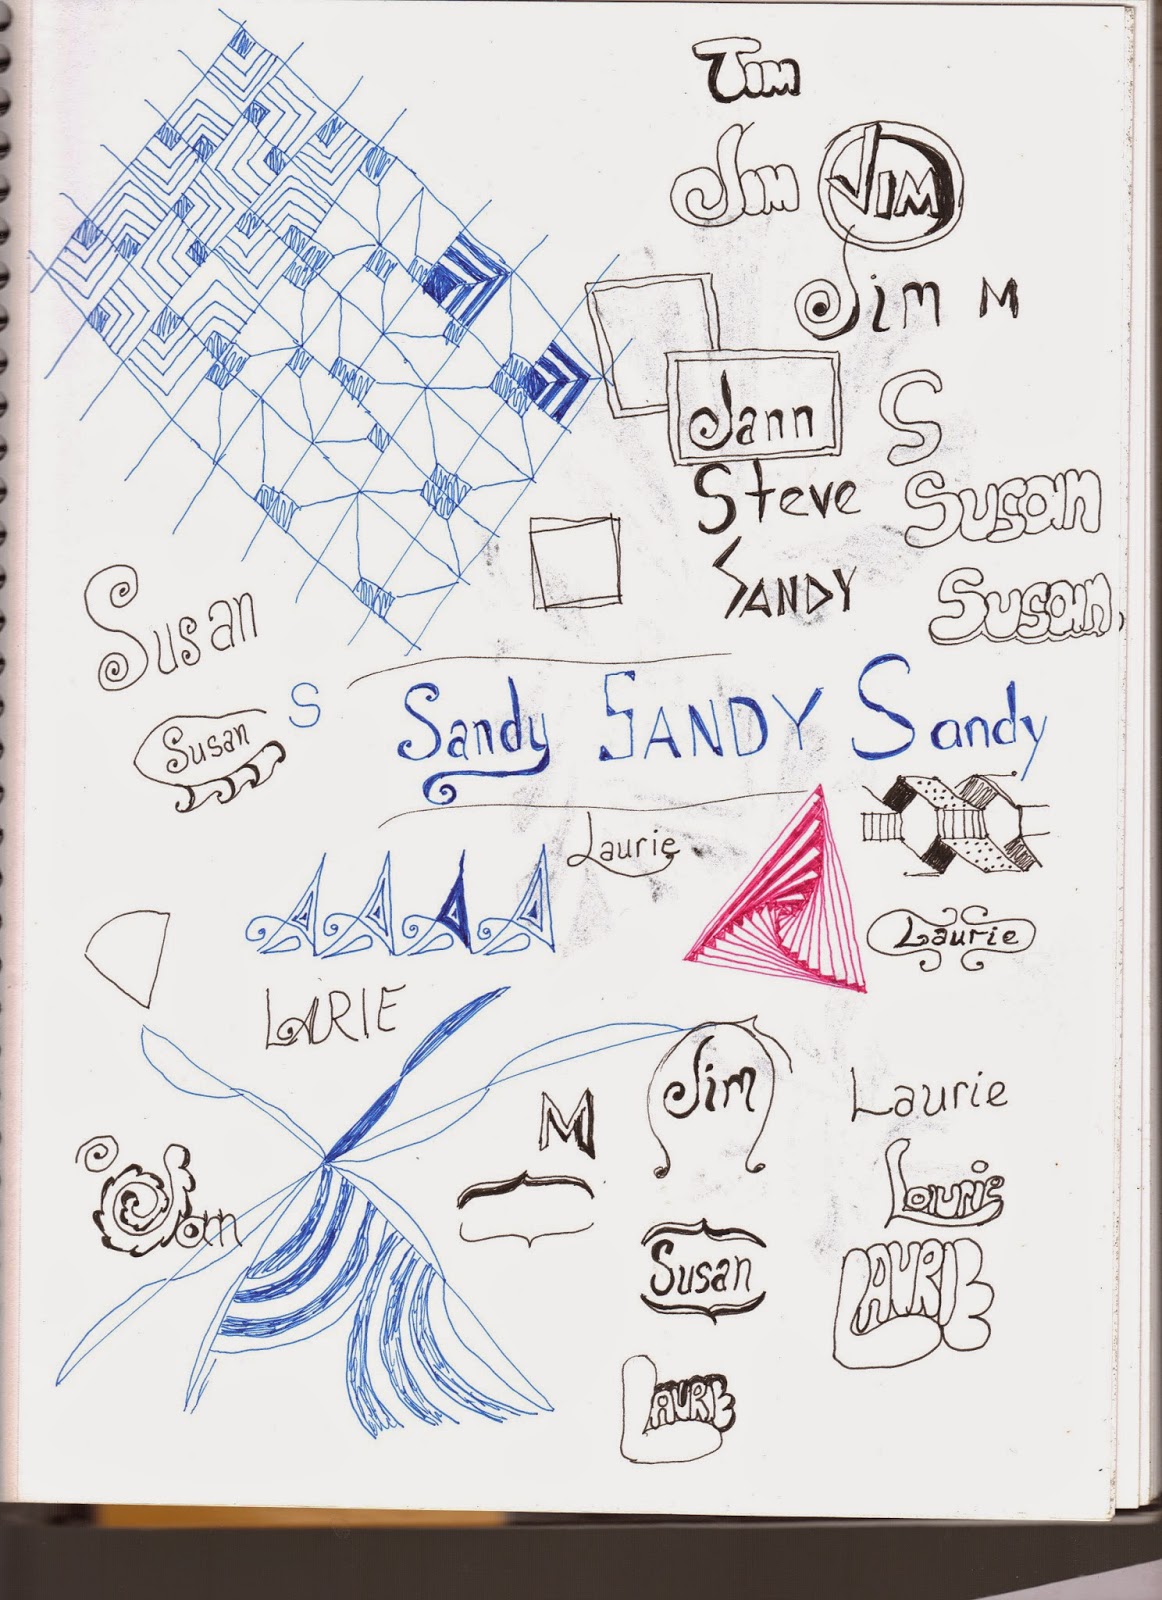 Tim
Jim JIM
Jim M
Jann S
Steve Susan
SANDY Susan
Susan
S
Susan
Sandy SANDY Sandy
Laurie
Laurie
LAURIE
Jim
M
Laurie
Laurie
Susan
LAURIE
LAURIE